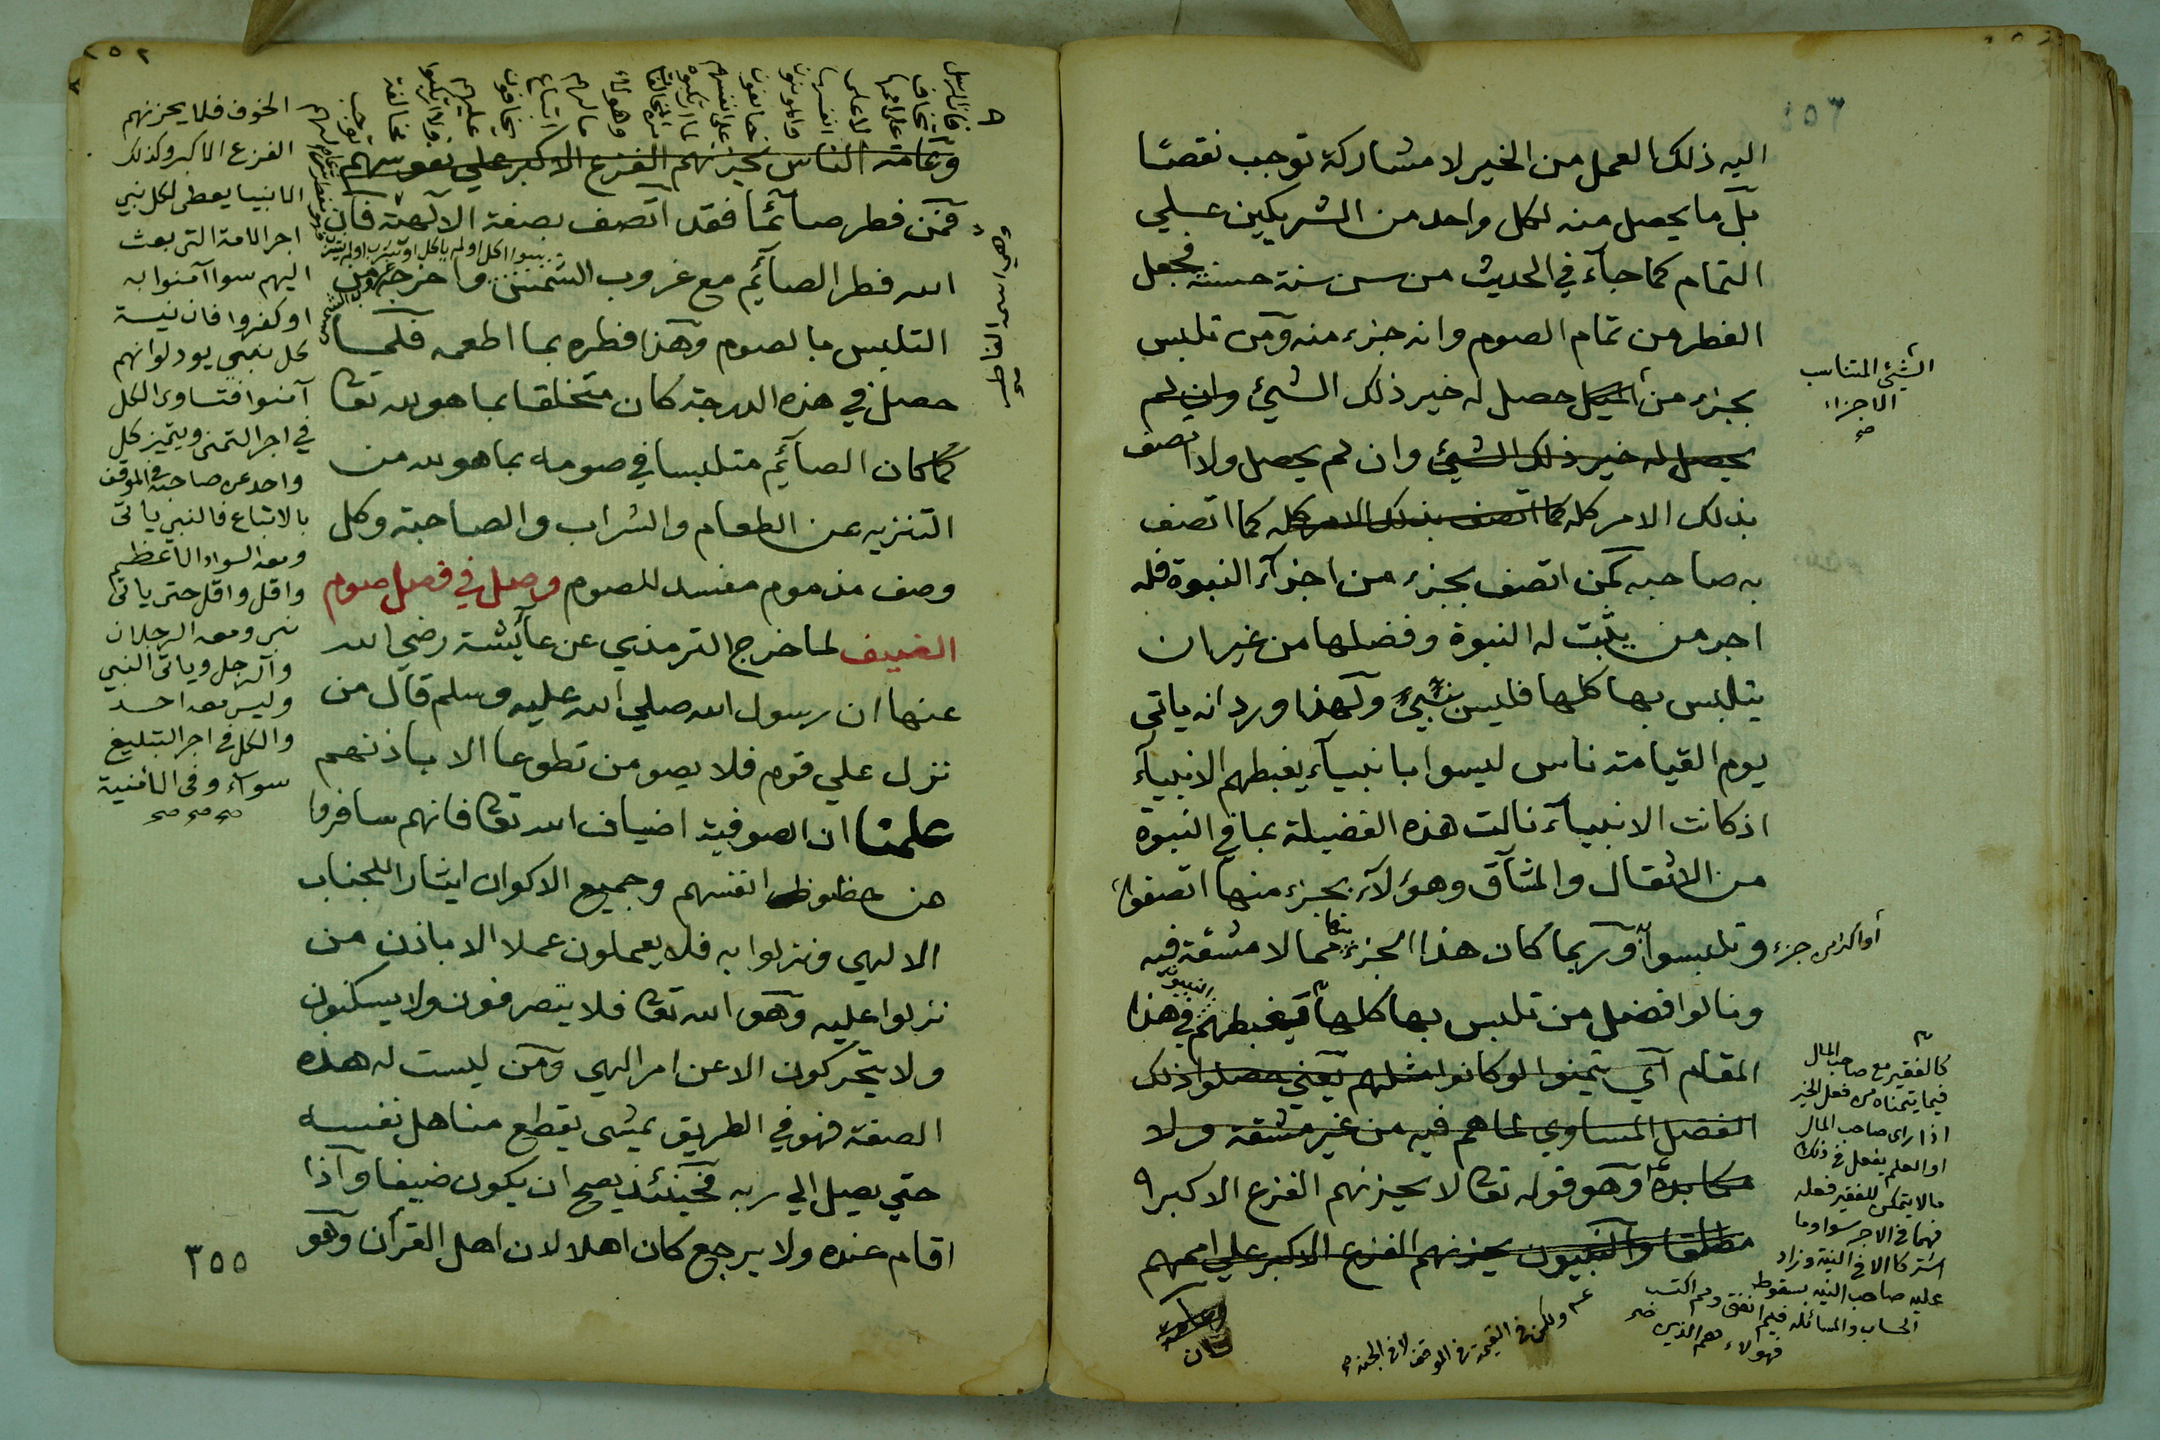 اليه ذلك العمل من الخير لا مشاركة توجب نقصا
بل ما يحصل منه لكل واحد من الشريكين علي
التمام كما جاء في الحديث من سن سنة حسنة فجعل
الفطر من تمام الصوم وانه جزء منه ومن تلبس
بجزء من الشيئ المتناسب الاجزاء حصل له خير ذلك الشيئ وان لم
يحصل له خير ذلك الشيئ وان لم يحصل ولا اتصف
بذلك الامر كله كما اتصف بذلك الامر كله كما اتصف
به صاحبه كمن اتصف بجزء من اجزآء النبوة فله
اجر من يثبت له النبوة وفضلها من غير ان
يتلبس بها كلها فليس بنبي ولهذا ورد انه ياتي
يوم القيامة ناس ليسوا بانبياء يغبطهم الانبيآء
اذ كانت الانبيآء نالت هذه الفضيلة بما في النبوة
من الاثقال والمشآق وهؤلآء بجزء منها اتصفوا
او اكثر من جزء
وتلبسوا به وربما كان هذا الجزء مما لا مشقة فيه
ونالوا فضل من تلبس بها كلها فيغبطهم النبيون في هذا
المقام اي يتمنوا لو كانوا مثلهم يعني حصلوا ذلك
الفضل المساوي لما هم فيه من غير مشقة ولا
مكابدة وهو قوله تعا لا يحزنهم الفزع الاكبر ٩
مطلقا والنبيون يحزنهم الفزع الاكبر علي اممهم
كالفقير مع صاحب المال
فيما يتمناه من فعل الخير
اذا راى صاحب المال
او العلم يفعل في ذلك
ما لا يتمكن للفقير فعله
فهما في الاجر سوا وما
اشتركا الا في النية وزاد
عليه صاحب النية بسقوط
الحساب والمسائلة فيم انفق ومم اكتسب
فهولاء هم الذين
ولكن في القيمة في الموقف لا في الجنة
٩
فالرسل
تخاف
على اممها
لا على
انفسها
والمومنون
خايفون
على انفسهم
لما ارتكبوه
من المخالفات
وهولاء
ما لهم
اتباع
يخافون
عليهم
ولا ارتكبوا
مخالفة
توجب
الخوف فلا يحزنهم
الفزع الاكبر وكذلك
الانبيا يعطى لكل نبي
اجر الامة التى بعث
اليهم سوا آمنوا به
او كفروا فان نية
كل نبي يود لو انهم
آمنوا فتساوى الكل
في اجر التمنى ويتميز كل
واحد عن صاحبه في الموقف
بالاتباع فالنبي ياتى
ومعه السواد الاعظم
واقل واقل حتى ياتى
نبى ومعه الرجلان
والرجل وياتى النبي
وليس معه احد
والكل في اجر التبليغ
سوآء وفى الامنية
صح صح صح
وعامة الناس يحزنهم الفزع الاكبر علي نفوسهم
فمن فطر صآئما فقد اتصف بصفة الالهية فان
الله فطر الصآئم مع غروب الشمس سوا اكل او لم ياكل او شرب او لم يشرب واخرجه من
التلبس بالصوم وهذا فطره بما اطعمه فلما
حصل في هذه الدرجة كان متخلقا بما هو لله تعا
كما كان الصآئم متلبسا في صومه بما هو لله من
التنزيه عن الطعام والشراب والصاحبة وكل
وصف مذموم مفسد للصوم وصل في فصل صوم
الضيف لما خرج الترمذي عن عآئشة رضي الله
عنها ان رسول الله صلي الله عليه وسلم قال من
نزل علي قوم فلا يصومن تطوعا الا باذنهم
علمنا ان الصوفية اضياف الله تعا فانهم سافروا
من حظوظ انفسهم وجميع الاكوان ايثارا للجناب
الالهي ونزلوا به فلا يعملون عملا الا باذن من
نزلوا عليه وهو الله تعا فلا يتصرفون ولا يسكنون
ولا يتحركون الا عن امر الهي ومن ليست له هذه
الصفة فهو في الطريق يمشي يقطع مناهل نفسه
حتي يصل الي ربه فحينئذ يصح ان يكون ضيفا واذا
اقام عنده ولا يرجع كان اهلا لان اهل القرآن وهو
٣٥٥